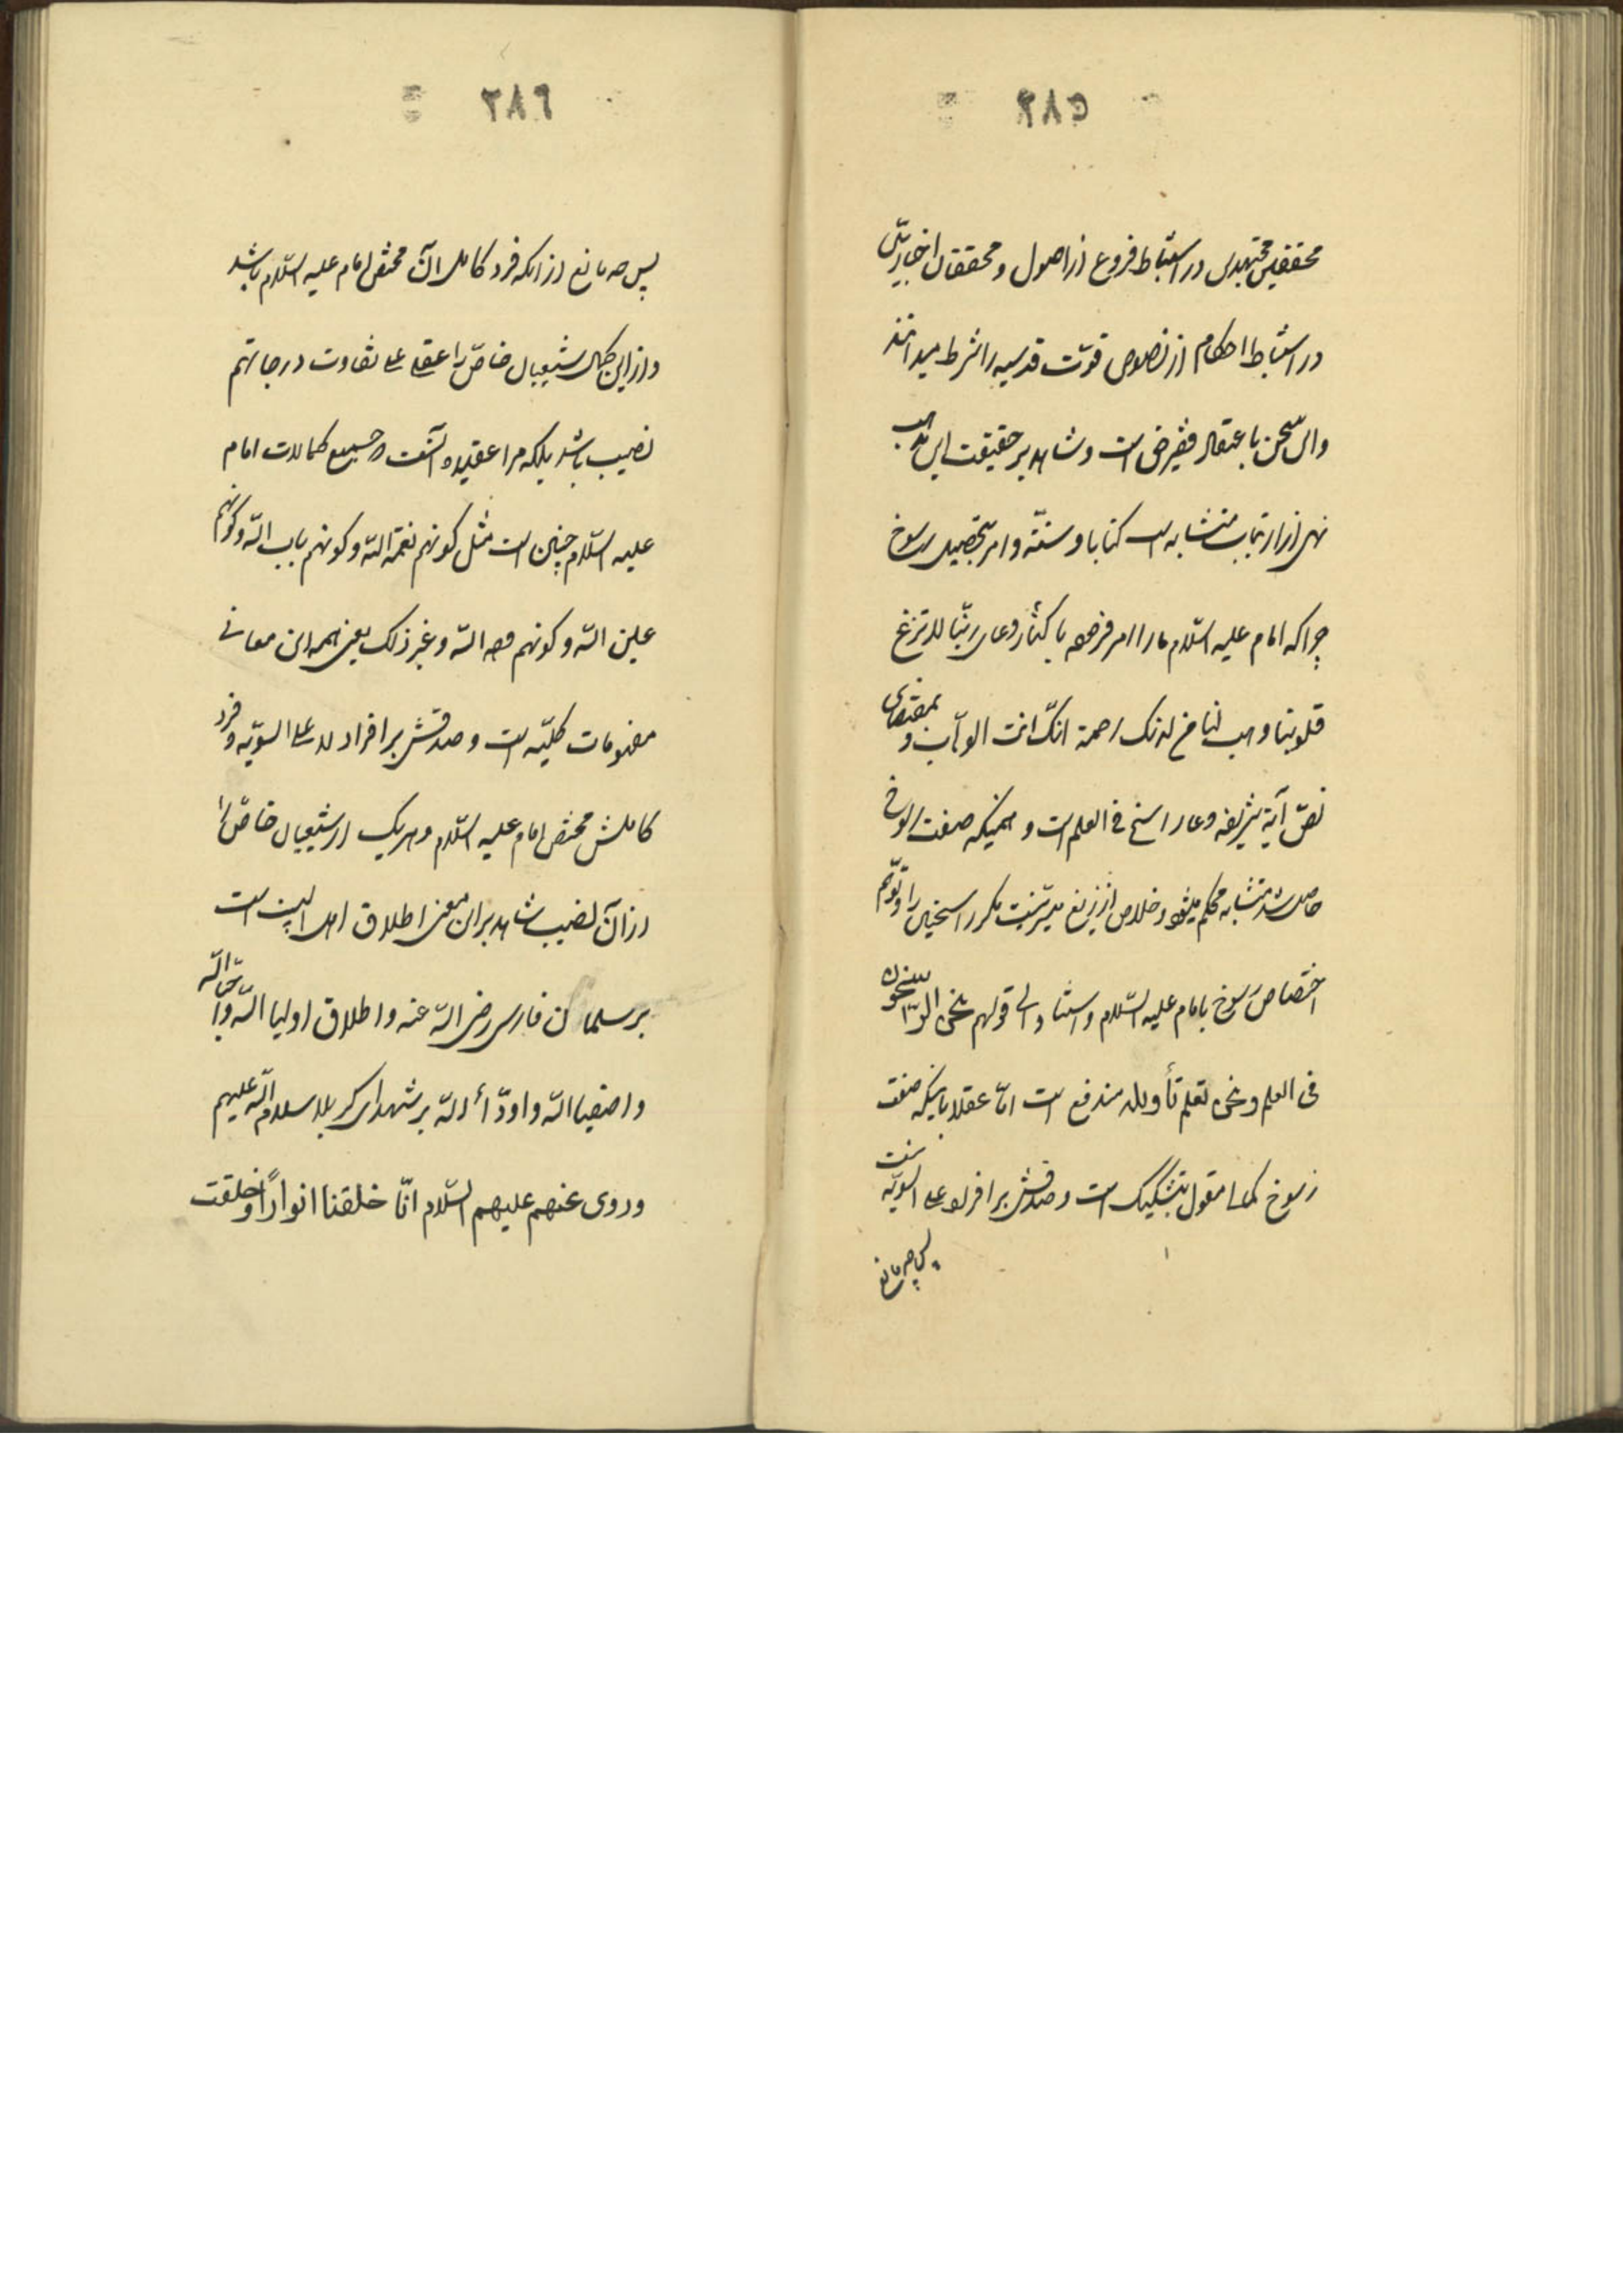 ٢٨٥
محققین مجتهدین در استنباط فروع از اصول و محققان اخباریین
در استنباط احکام از نصوص قوّت قدسیه را شرط میدانند
و این سخن باعتقاد فقیر مرضی است و شاهد بر حقیقت این مذهب
نهی از ارتکاب متشابه است کتابا و سنّة و امر بتحصیل رسوخ
چرا که امام علیه السّلام ما را امر فرموده باکثار دعای ربّنا لا تزغ
قلوبنا و هب لنا من لدنک رحمة انّک انت الوهّاب و بمقتضای
نصّ آیة شریفه دعای راسخ فی العلم است و همینکه صفت رسوخ
حاصل شد متشابه محکم میشود و خلاص از زیغ میسّر نیست مگر راسخین را و توهّم
اختصاص رسوخ بامام علیه السّلام و استناد الی قولهم نحن الرّاسخون
فی العلم و نحن نعلم تأویله مندفع است امّا عقلا باینکه صفت
رسوخ کمالا مقول بتشکیک است و صدقش بر افراد علی السویّه نیست
پس چه مانع
٢٨٦
پس چه مانع از آنکه فرد کامل آن مختصّ امام علیه السّلام باشد
و از این کمال شیعیان خاصّ را علی تفاوت درجاتهم
نصیب باشد بلکه مرا عقیده آنست که جمیع کمالات امام
علیه السّلام چنین است مثل کونهم نعمة اللّه و کونهم باب اللّه و کونهم
عین اللّه و کونهم وجه اللّه و غیر ذلک یعنی همه این معانی
مفهومات کلیّه است و صدقش بر افراد لا علی السویّه و فرد
کاملش مختصّ امام علیه السّلام و هر یک از شیعیان خاصّ را
از آن نصیب شاهد بر این معنی اطلاق اهل البیت است
بر سلمان فارسی رضی اللّه عنه و اطلاق اولیا اللّه و احبّا اللّه
و اصفیا اللّه و اودّاء اللّه بر شهدای کربلا سلام اللّه علیهم
و روی عنهم علیهم السّلام انّا خلقنا انوارًا و خلقت